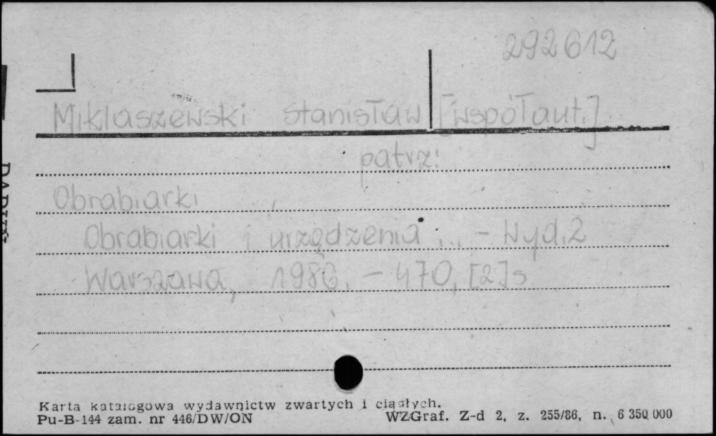 292612
Miklaszewski Stanisław [współaut.]
patrz:
Obrabiarki
Obrabiarki i urządzenia... – Wyd. 2
Warszawa, 1986. – 470, [2] s
Karta katalogowa wydawnictw zwartych i ciągłych.
Pu-B-144 zam. nr 446/DW/ON WZGraf. Z-d 2, z. 255/86, n. 6 350 000